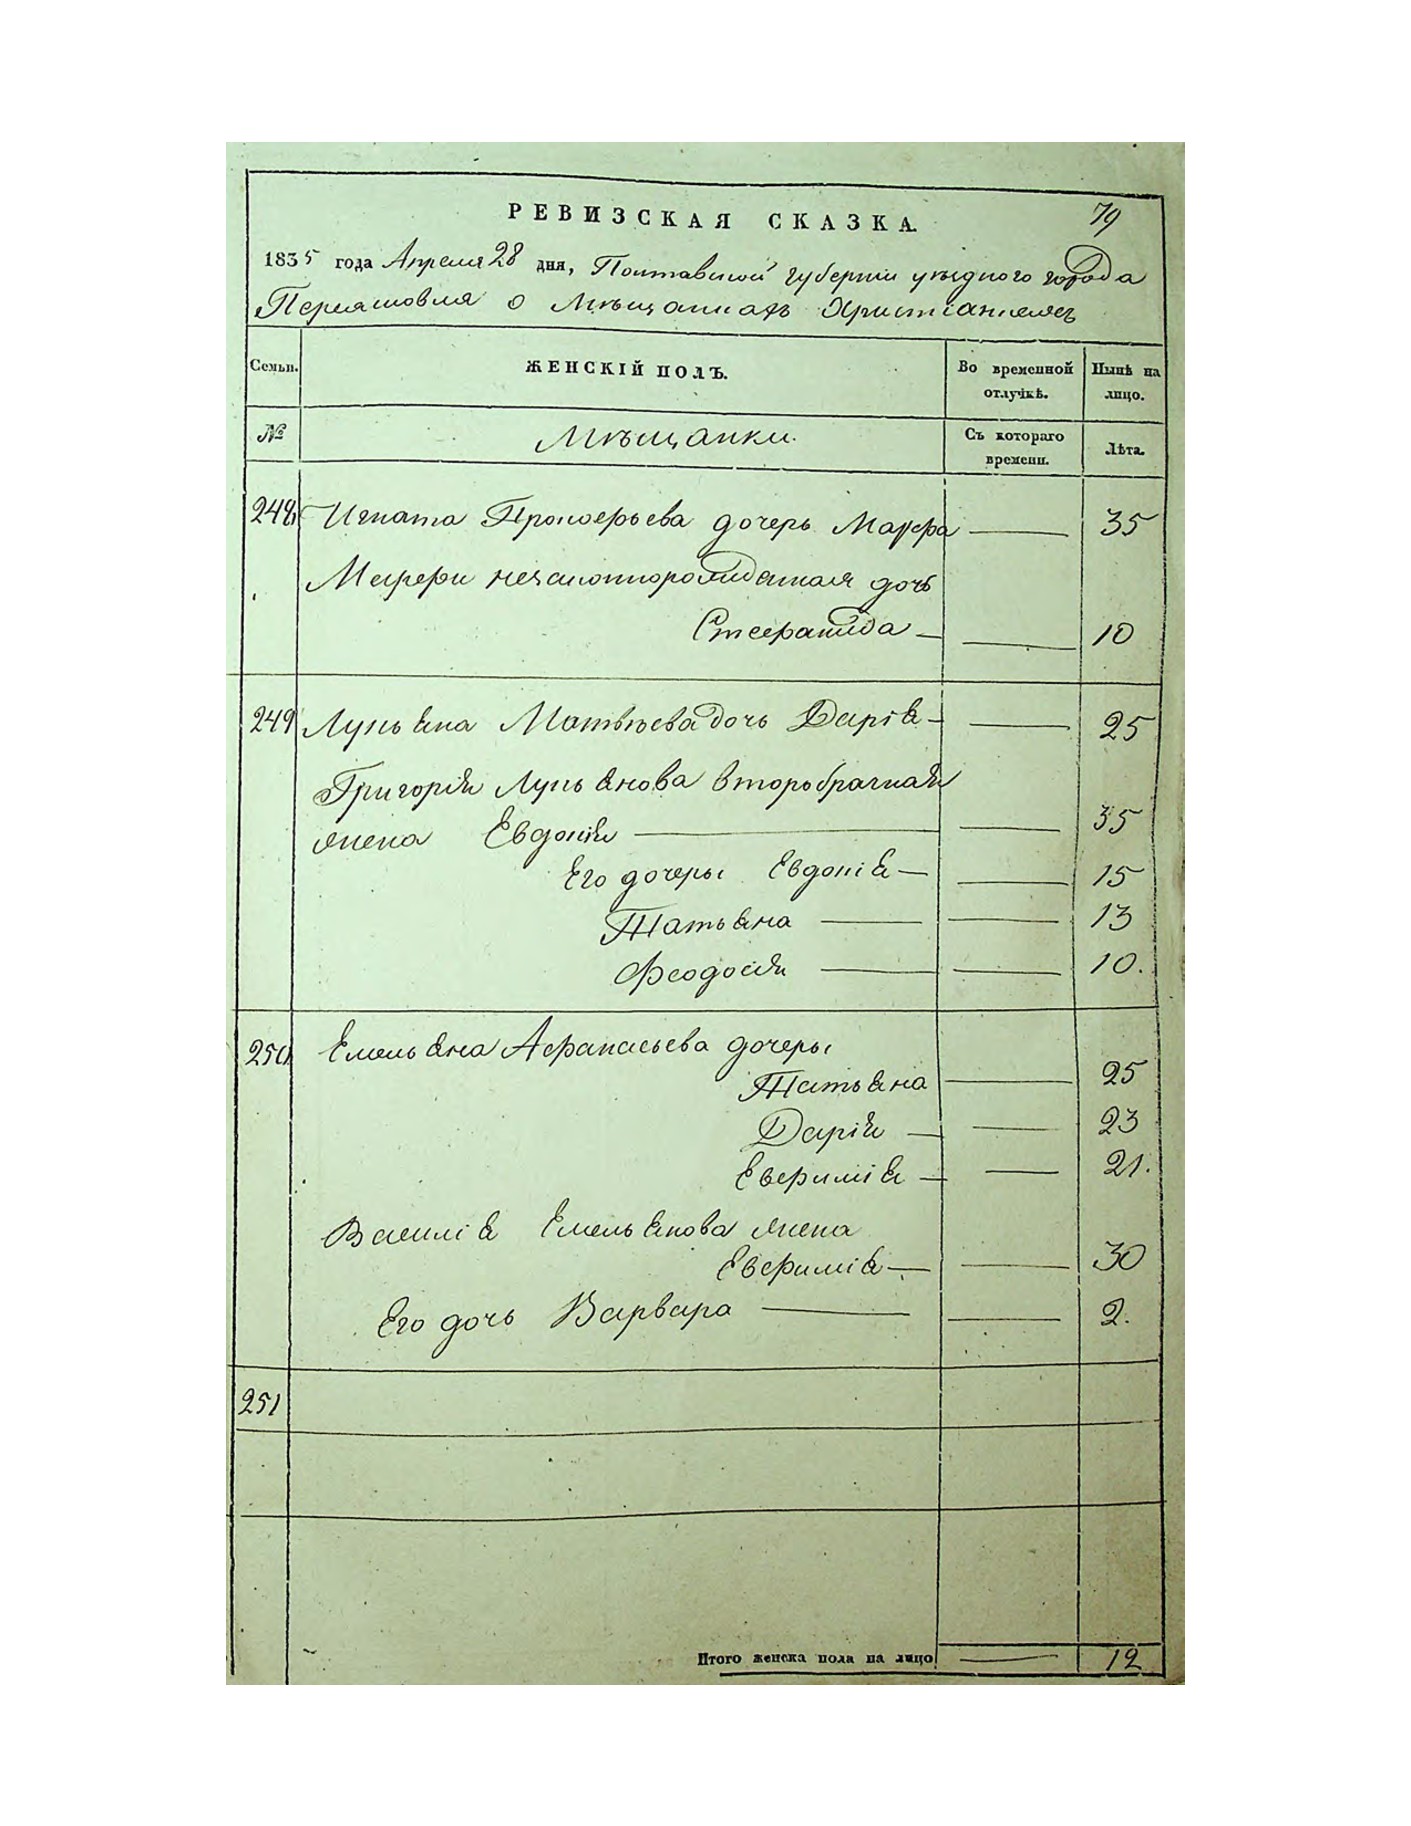 РЕВИЗСКАЯ СКАЗКА.
79
1835 года Апреля 28 дня, Полтавской губернии уѣзднаго города
Переяславля о Мѣщанахъ Христіанахъ
Семьи.
ЖЕНСКІЙ ПОЛЪ.
Во временной отлучкѣ.
Нынѣ на лицо.
№
Мѣщанки.
Съ котораго времени.
Лѣта.
248 Игната Прокофьева дочерь Марфа — 35
Марфы незаконнорожденная дочь
— 10
249 Лукьяна Матвѣева дочь Дарія — 25
Григорія Лукьянова второбрачная
жена Евдокія — 35
Его дочеры Евдокія — 15
Татьяна — 13
Феодосія — 10.
250 Емельяна Афанасьева дочеры
Татьяна — 25
Дарія — 23
Евфимія — 21.
Василія Емельянова жена
Евфимія — 30
Его дочь Варвара — 2.
251
Итого женска пола на лицо — 12